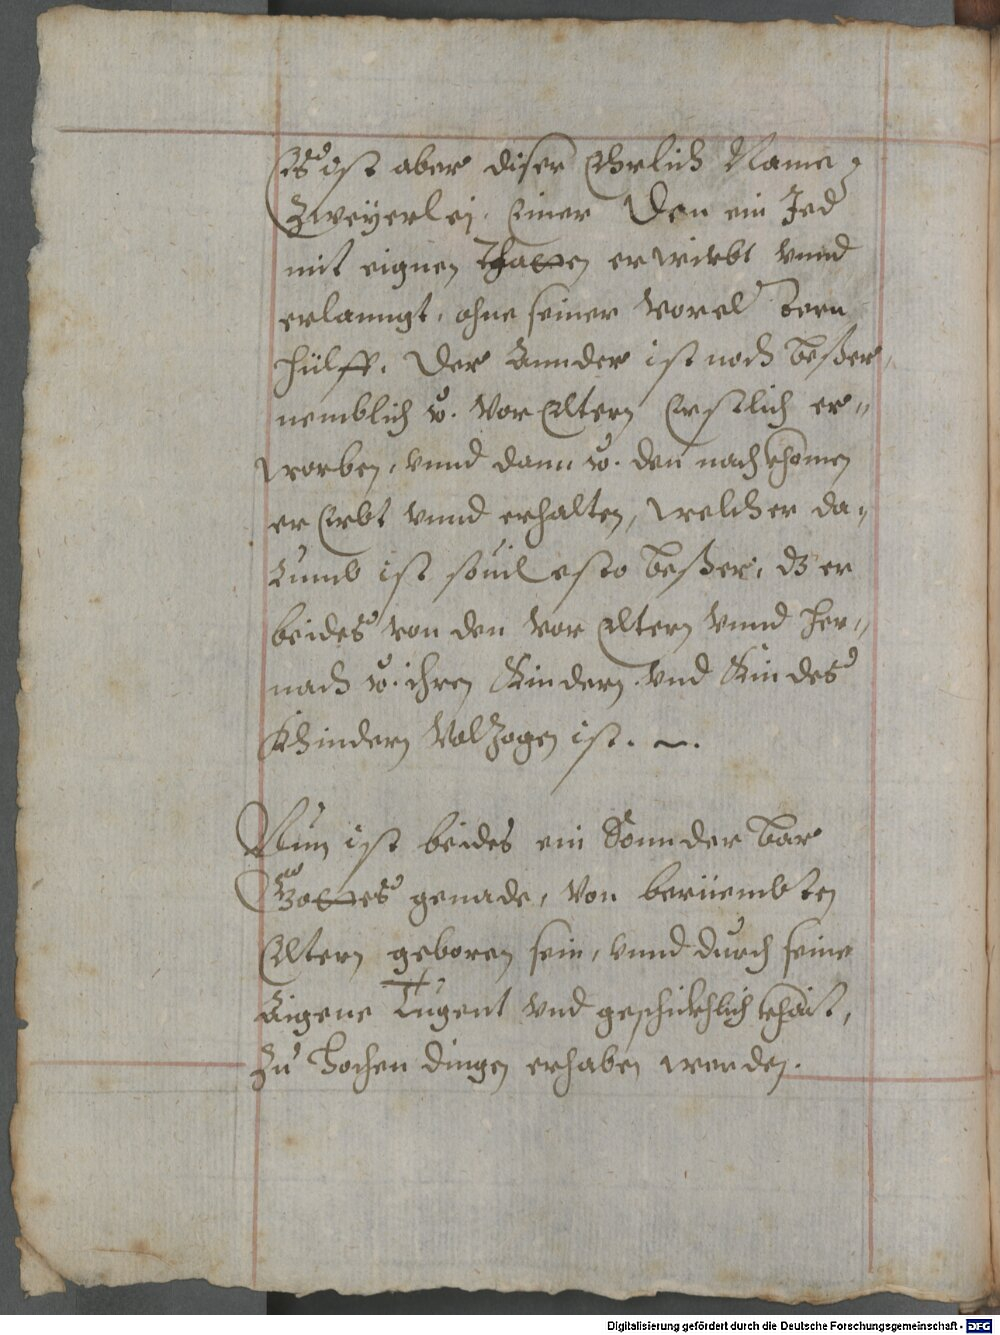 Es ist aber diser Ehrlich Name,
Zweyerlej. Einer Den ein Jed
mit eignen Thatten erwirbt vnnd
erlanngt, ohne seiner Vorel tern
hülff. Der Annder ist noch beßer,
nemblich v. Vor Eltern Erstlich er„
worben, vnnd dann v. den nachkhomen
er Erbt vnnd erhalten, welcher da„
Rumb ist souil esto beßer, dz er
beides von den Vor Eltern vnnd her„
nach v. ihren Kindern vnd Kindes
Khindern Volzogen ist. ~.
Nun ist beides ein Sonnder bar
Gottes genade, Von berüembten
Eltern geboren sein, vnnd durch seine
Aigene Tugent vnd geschickhlichkhait,
Zu hochen dingen erhaben werden.
Digitalisierung gefördert durch die Deutsche Forschungsgemeinschaft - DFG